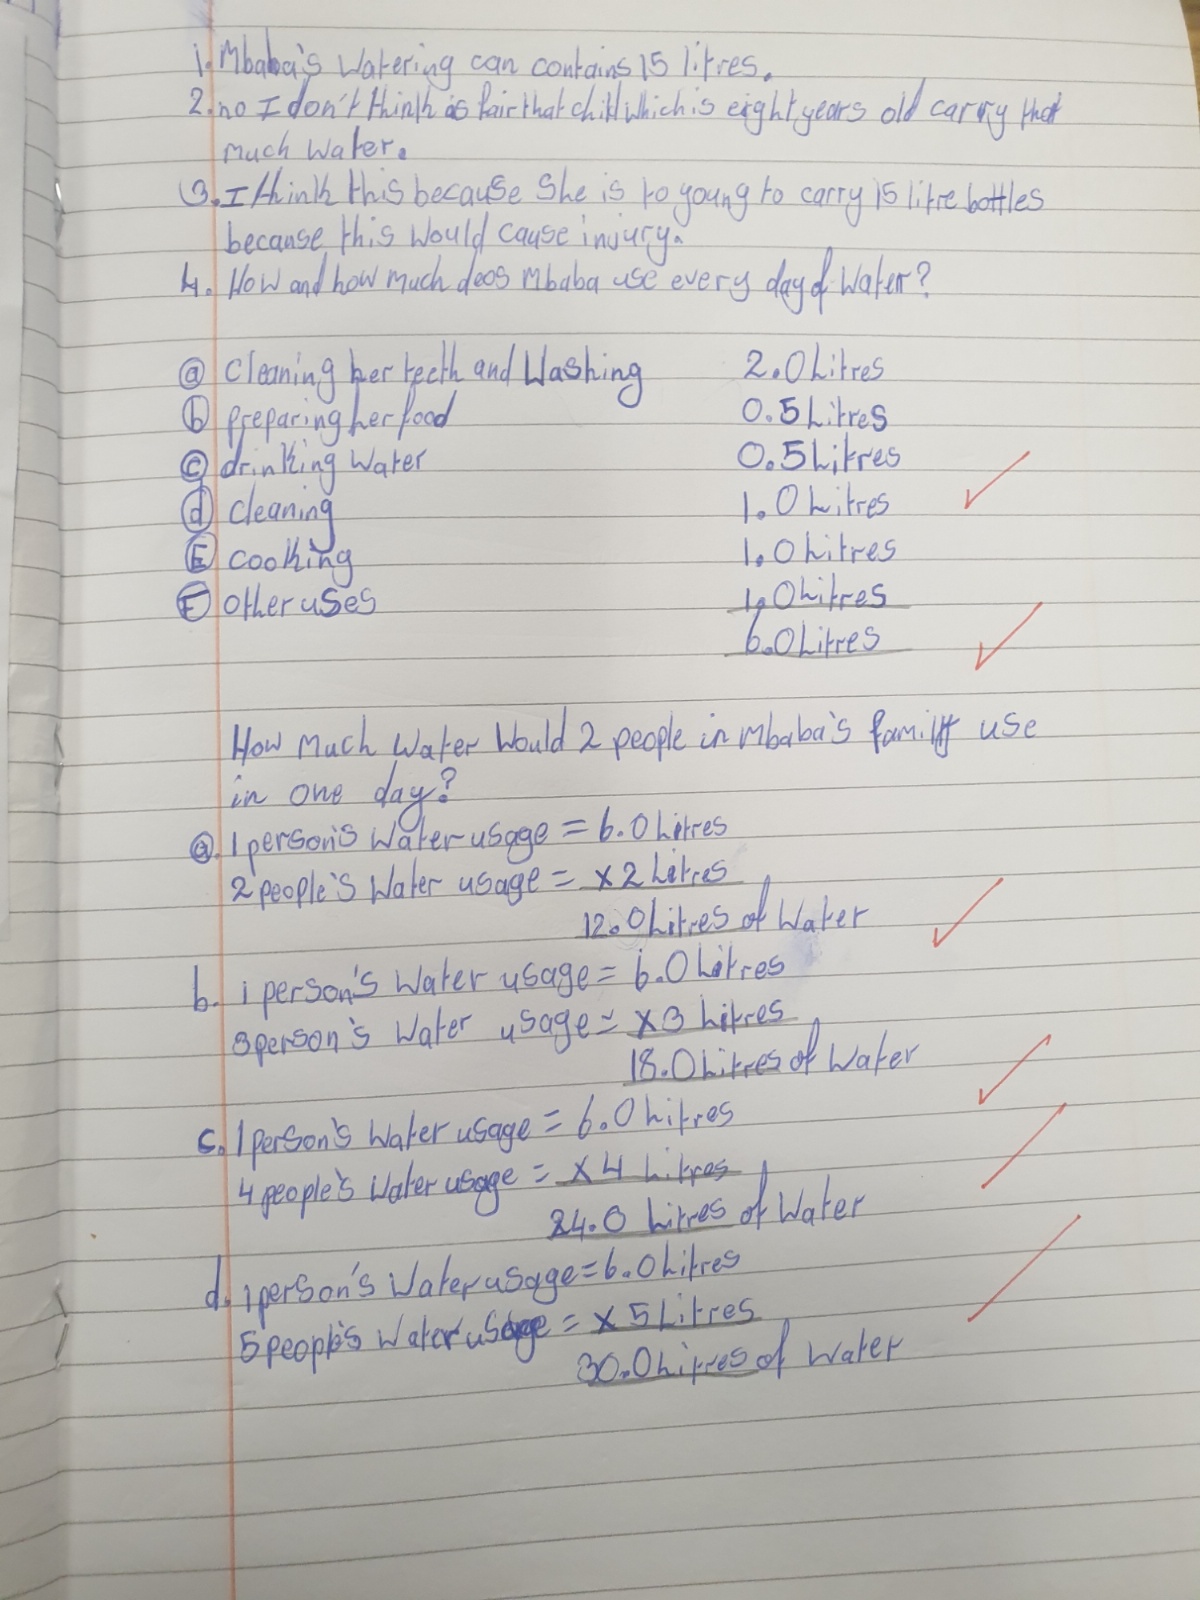 1. Mbaba's Watering can contains 15 litres.
2. no I don't think is fair that child which is eight years old carry that
much water.
3. I think this because She is to young to carry 15 litre bottles
because this would cause injury.
4. How and how much deos Mbaba use every day of Water?
a cleaning her teeth and Washing 2.0 Litres
b preparing her food 0.5 Litres
c drinking Water 0.5 Litres
d cleaning 1.0 Litres
E cooking 1.0 Litres
F other uses 1.0 Litres
6.0 Litres
How Much Water Would 2 people in Mbaba's family use
in one day?
a. 1 person's Water usage = 6.0 Litres
2 people's Water usage = x2 Litres
12.0 Litres of Water
b. 1 person's Water usage = 6.0 Litres
3 person's Water usage = x3 Litres
18.0 Litres of Water
c. 1 person's Water usage = 6.0 Litres
4 people's Water usage = x4 Litres
24.0 Litres of Water
d. 1 person's Water usage = 6.0 Litres
5 people's Water usage = x 5 Litres
30.0 Litres of Water